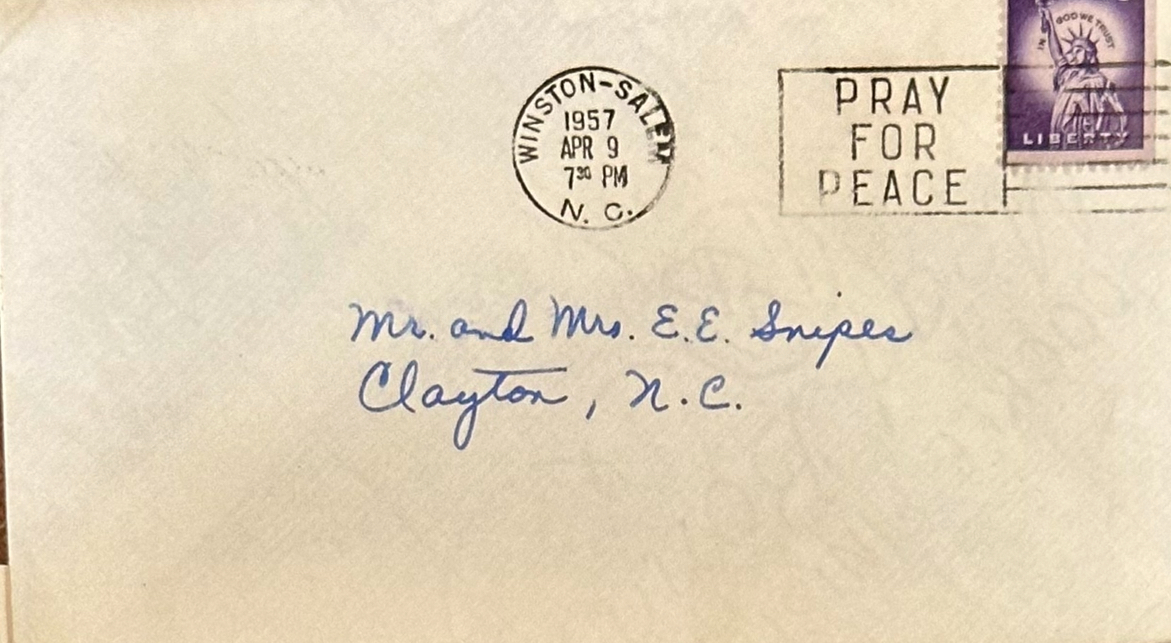 WINSTON-SALEM
1957
APR 9
7³⁰ PM
N. C.
PRAY
FOR
PEACE
IN GOD WE TRUST
LIBERTY
Mr. and Mrs. E.E. Snipes
Clayton, N.C.